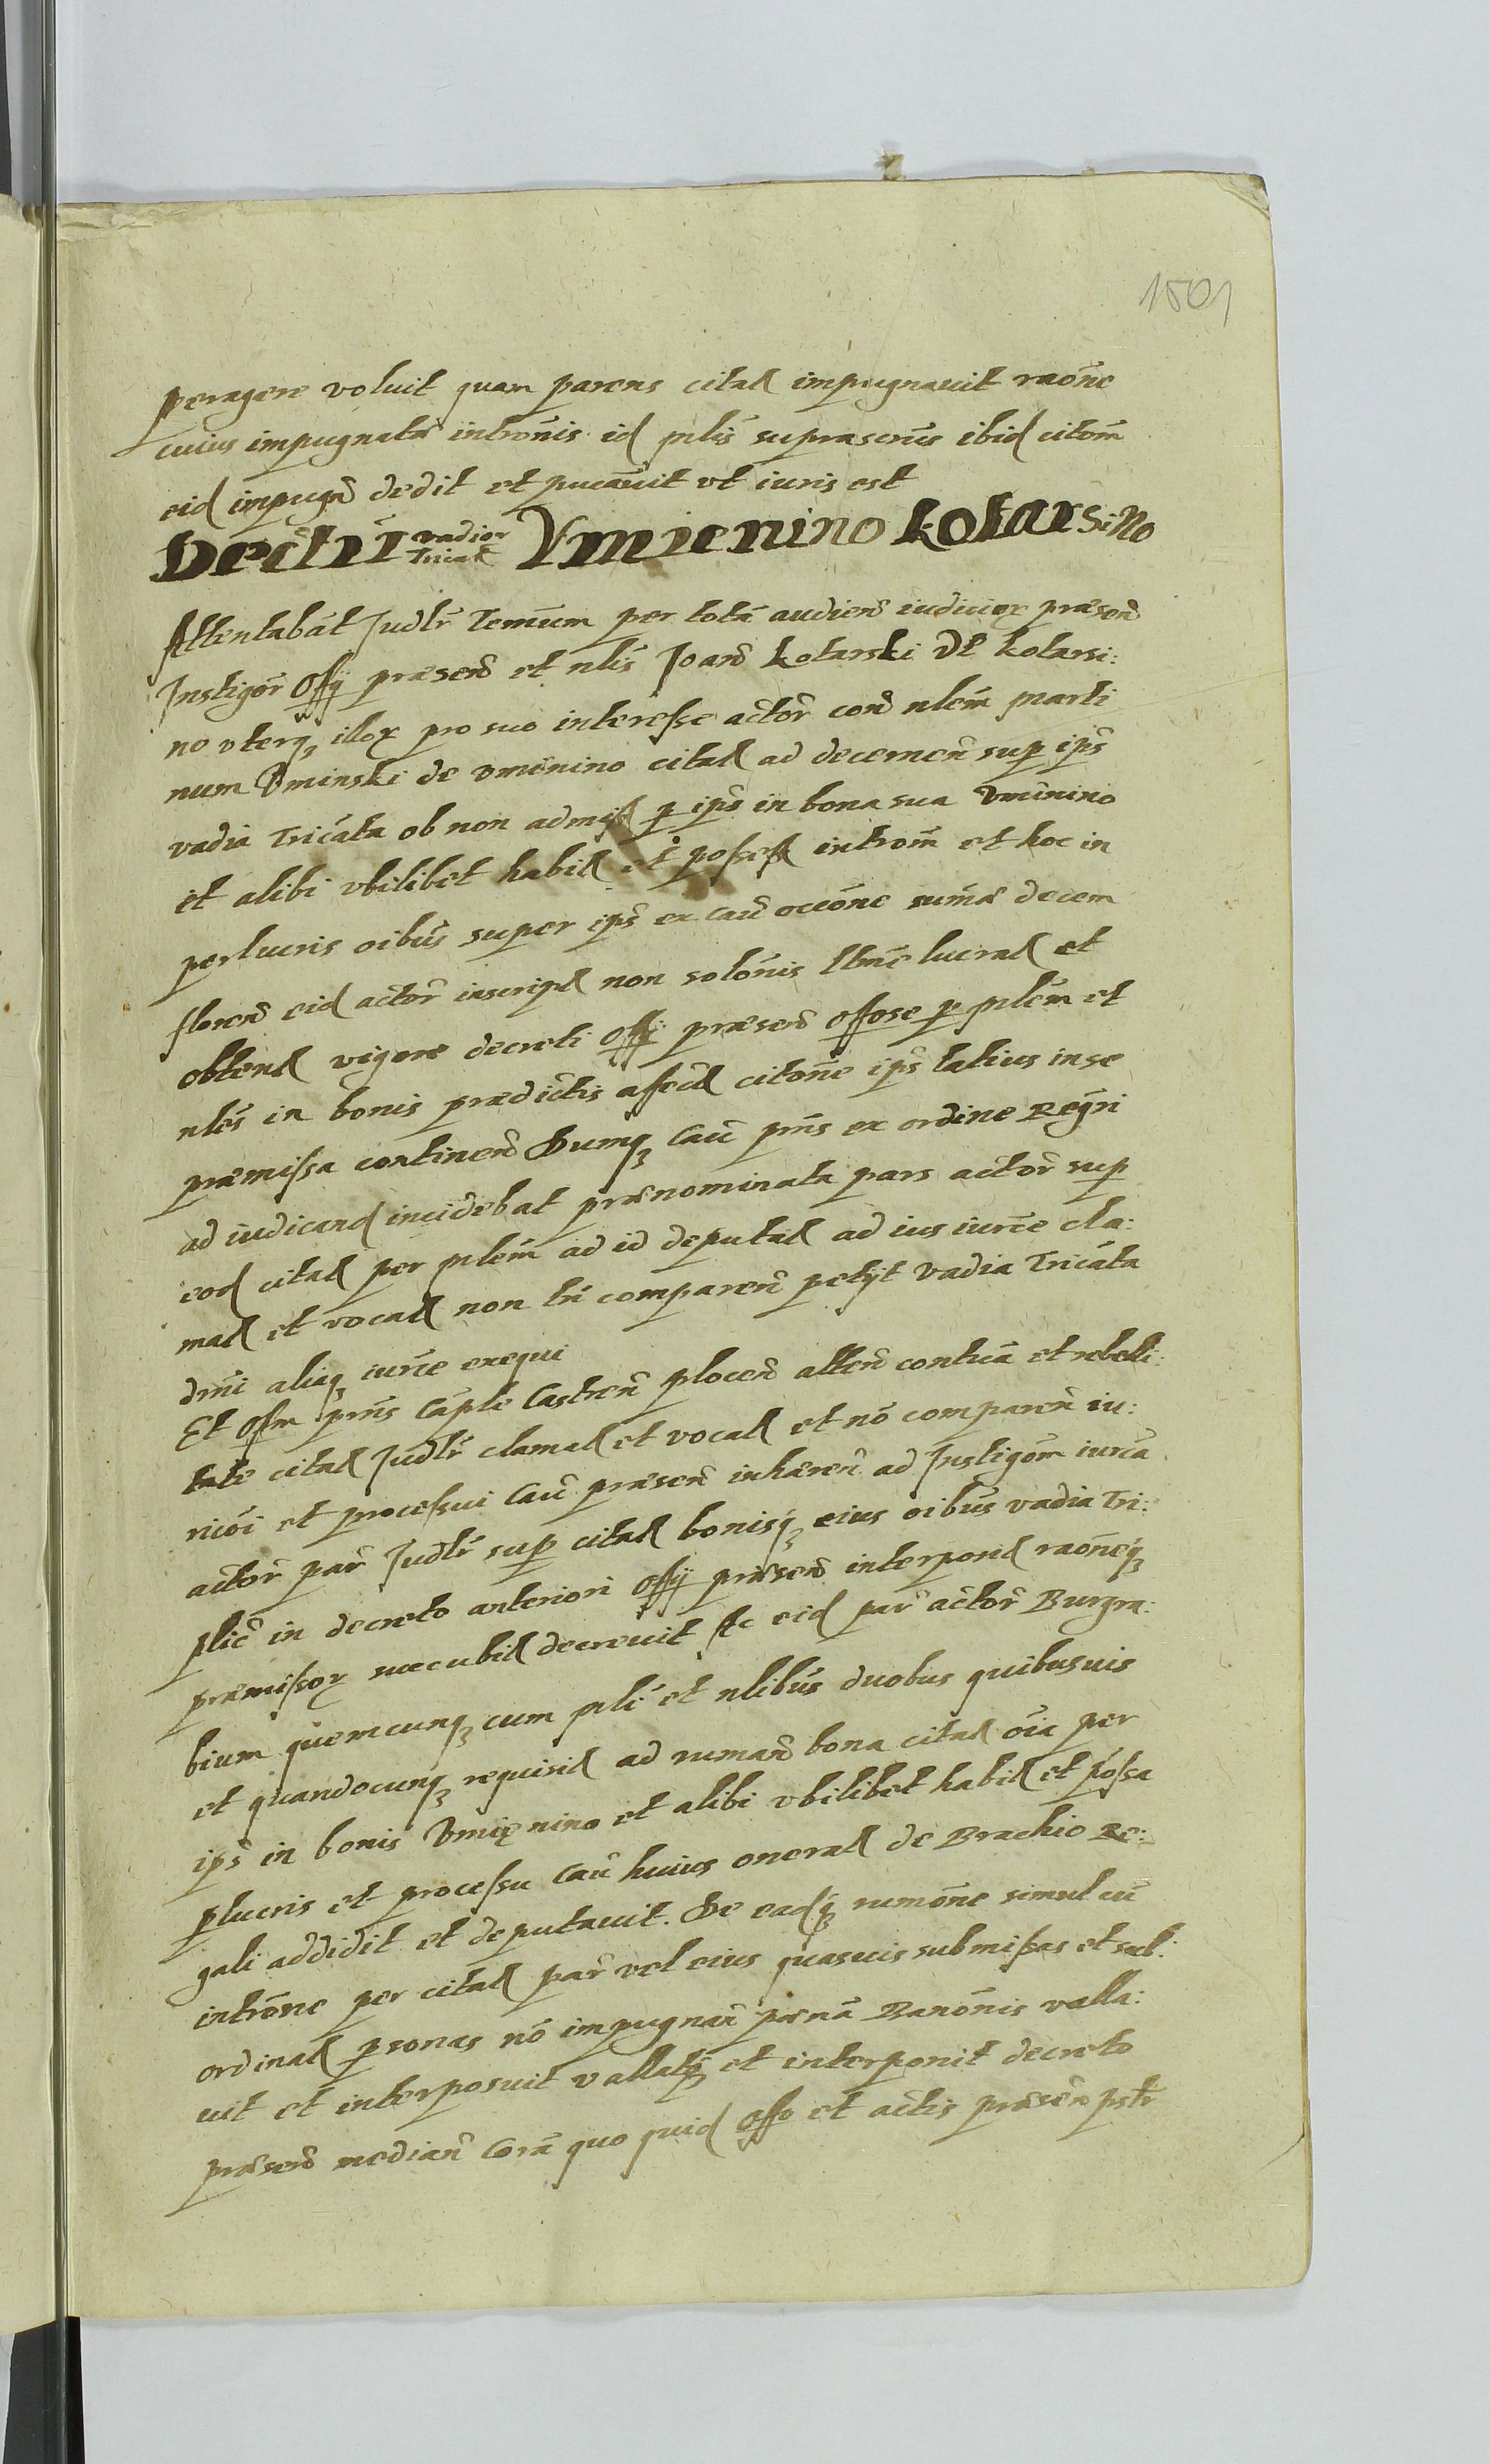 1501
peragere voluit quam parens citat impugnauit raōne
cuius impugnatæ intronīs id mlīs suprascrūs ibid citom̄
eid impugn̄ dedit et pucāuit vt iuris est
Decŕt vadior Tricat Vmienino kotarsino
Attentabāt Judlr̄ Tem̄um per totā audien̄ iudiciox præsen̄
Instigor̄ Offÿ præsen̄ et nlīs Joan̄ kotarski de kotarsi:
no vterq illox pro suo interesse actor̄ con̄ nlem̄ marti
num Vminski de vmīnino citat ad decernen̄ sup ips̄
vadia Tricāta ob non admiss p ips̄ in bona sua vmīnino
et alibi vbilibet habit et possess introm̄ et hoc in
perlucris oibūs super ips̄ ex cau̅ occōne sum̄æ decem
floren̄ eid actor̄ inscript non solōnis Ibnē lucrat et
obtent vigore decreti Offÿ præsen̄ offose p mlem̄ et
nlēs in bonis prædictis assecut citōne ips̄ latius in se
præmissa continen̄ Dumq Cau̅ pn̄s ex ordine Regr̄i
ad iudicand incidebat prænominata pars actor̄ sup
eod citat per mlem̄ ad id deputat ad ius iurcē cla:
mat et vocat non tn̄ comparen̄ petÿt vadia Tricāta
dnn̄i aliaq iurcē exequi
Et Offm pn̄s Caple Castren̄ plocen̄ atten̄ contuā et rebelli:
tate citat Judlr̄ clamat et vocat et nō comparen̄ iu:
ricōi et processui Cau̅ præsen̄ inhæren̄ ad Instigom̄ iurcā
actor̄ par̄ Judlr̄ sup citat bonisq eius oibūs vadia Tri:
plic̄ in decreto anteriori Offÿ præsen̄ interposit raōneq
præmissox succubit decreuit Ac eid par̄ actor̄ Burgra:
bium quemcunq cum mli et nlibūs duobus quibusuis
et quandocunq requisit ad ruman̄ bona citat oīa per
ips̄ in bonis Vmięnino et alibi vbilibet habit et possa
plucris et processu Cau̅ huius onerat de Brachio Re:
gali addidit et deputauit. De eadq rumōne simul cū
intrōne per citat par̄ vel eius quasuis submissas et sub:
ordinat psonas nō impugnan̄ pænā Banōnis valla:
uit et interposuit vallatq et interponit decreto
præsen̄ median̄ Corā quo quid Offo et actis præsen̄ pstr̄